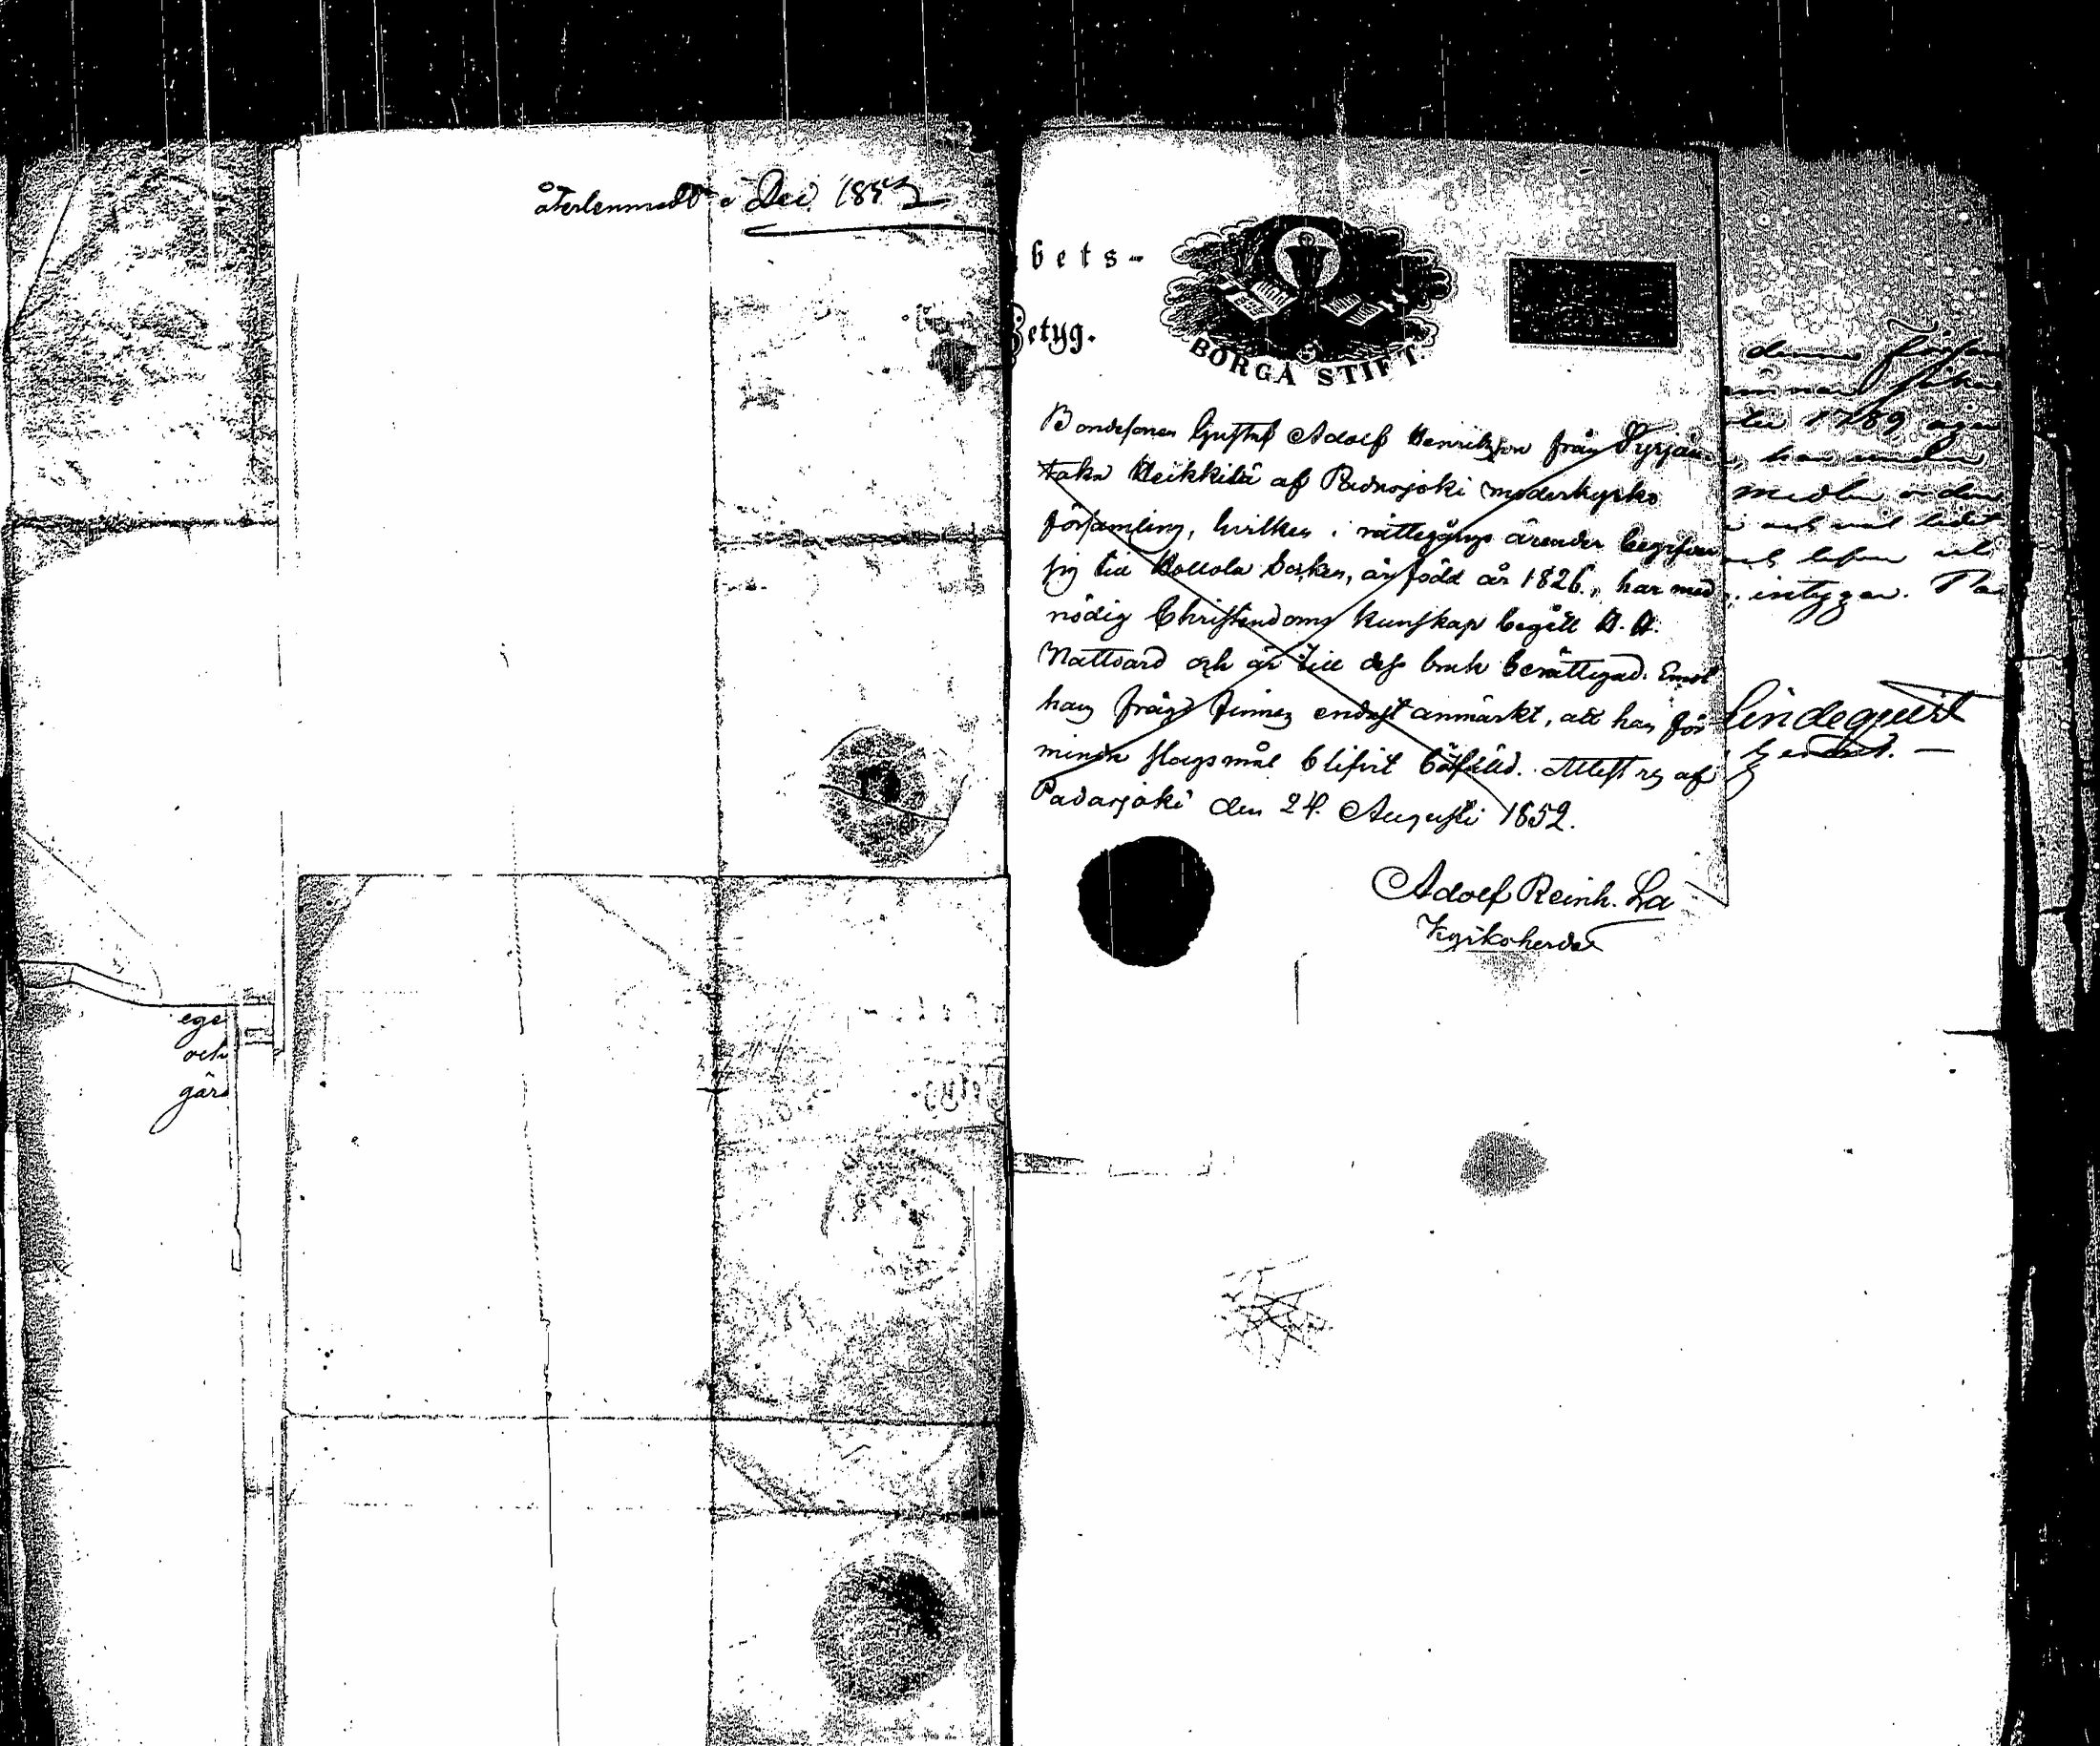 återlemnadt i Dec 1852
ege
och
går
bets-
Betyg.
BORGÅ STIFT.
Bondesonen Gustaf Adolf Henriksson från Syrjän-
taka Heikkilä af Padasjoki moderkyrko
församling, hvilken i rättegångs ärender begifver
sig till Hollola Socken, är född år 1826, har med
nödig Christendoms kunskap begått H. H.
Nattvard och är till dess bruk berättigad. Emot
hans frägd finnes endast anmärkt, att han för
minda slagsmål blifvit bötfälld. Attesteras af
Padasjoki den 24 Augusti 1852.
Adolf Reinh. La
Kyrkoherde
denna
1789 äger
och
intygar.
Lindequist